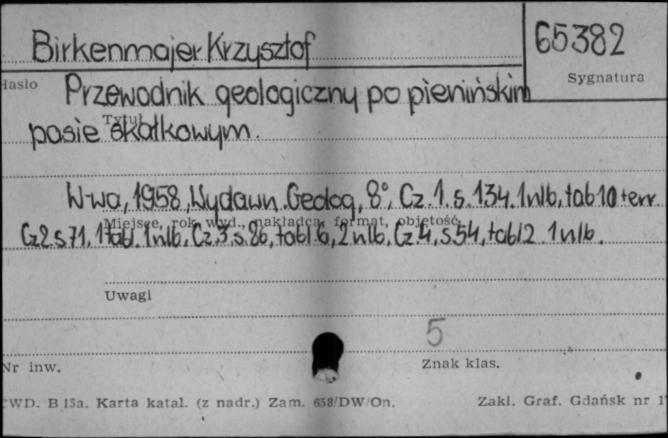 Birkenmajer Krzysztof
65382
Hasło
Sygnatura
Przewodnik geologiczny po pienińskim
Tytuł
pasie skałkowym.
W-wa, 1958, Wydawn. Geolog, 8°, Cz. 1. s. 134. 1nlb, tab 10 + err.
Miejsce, rok wyd., nakładca, format, objętość
Cz2 s 71. 1 tabl. 1nlb, Cz. 3, s. 86, tabl 6, 2nlb, Cz 4, s 54, tabl 2. 1nlb.
Uwagi
5
Nr inw.
Znak klas.
WD. B 15a. Karta katal. (z nadr.) Zam. 658/DW/On.
Zakł. Graf. Gdańsk nr 1